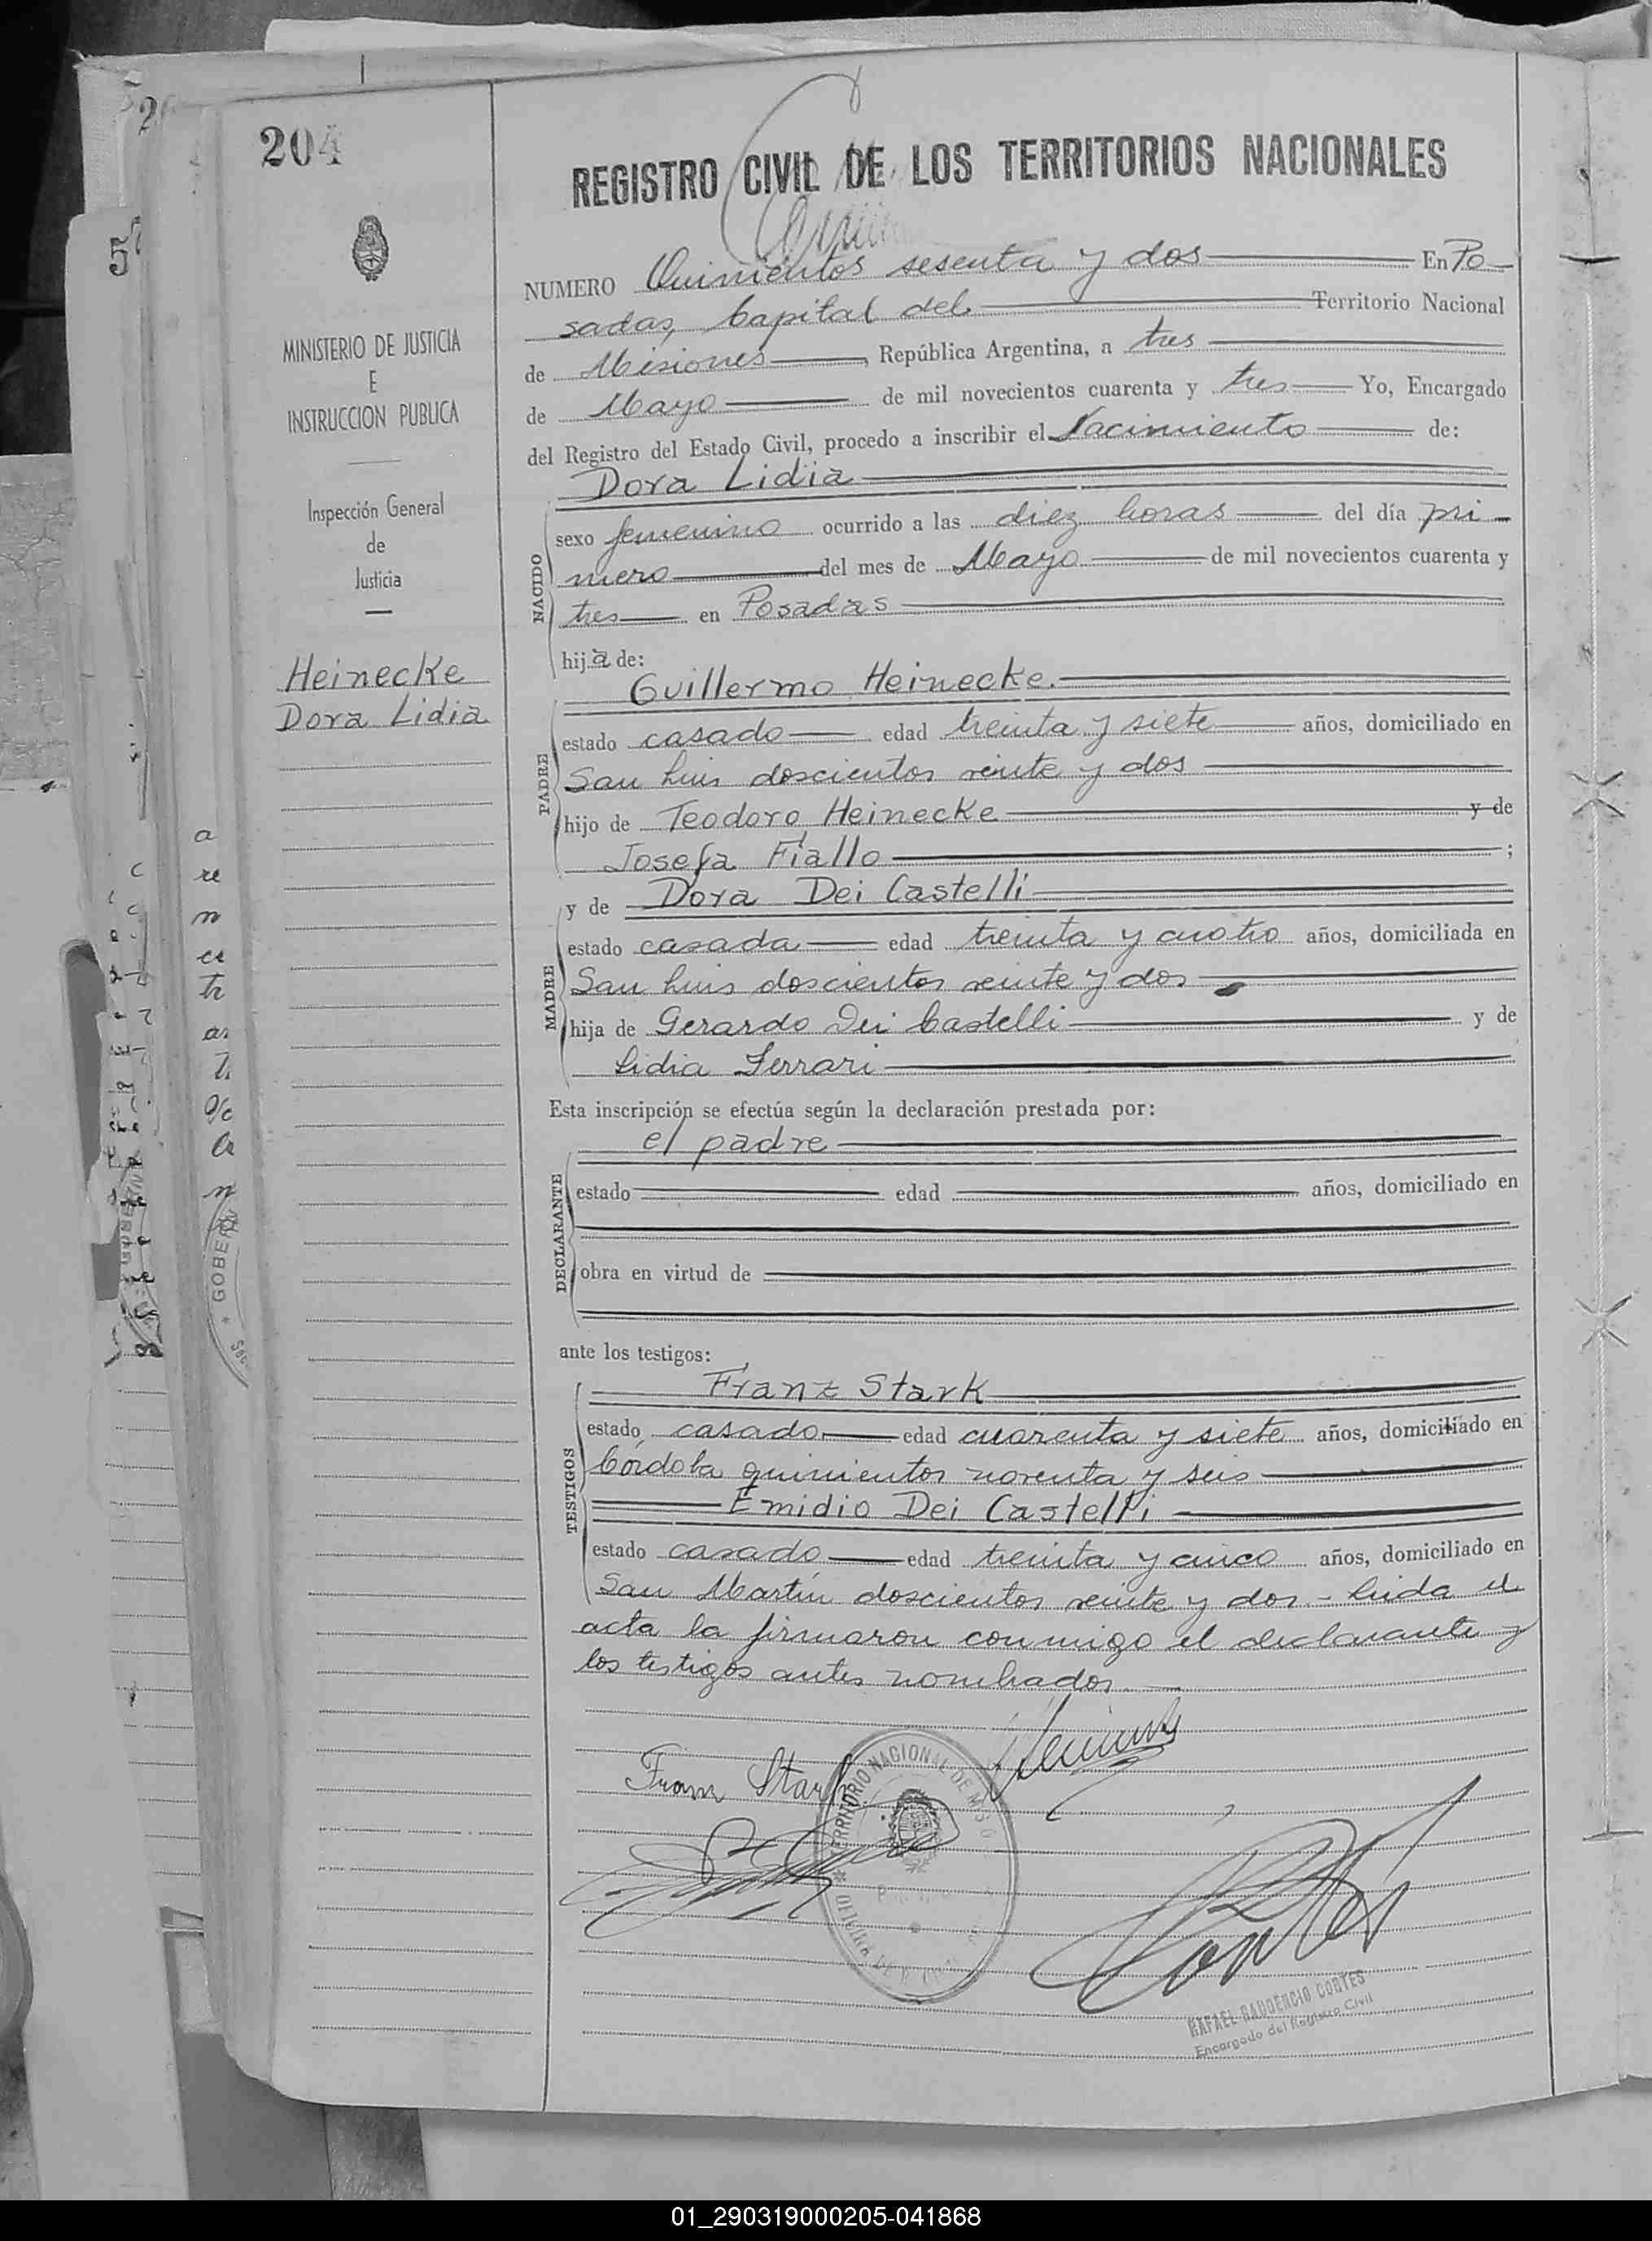 204
REGISTRO CIVIL DE LOS TERRITORIOS NACIONALES
MINISTERIO DE JUSTICIA
E
INSTRUCCION PUBLICA
Inspección General
de
Justicia
Heinecke
Dora Lidia
NUMERO Quinientos sesenta y dos En Po
sadas, Capital del Territorio Nacional
de Misiones, República Argentina, a tres
de Mayo de mil novecientos cuarenta y tres Yo, Encargado
del Registro del Estado Civil, procedo a inscribir el Nacimiento de:
Dora Lidia
NACIDO
sexo femenino ocurrido a las diez horas del día pri-
mero del mes de Mayo de mil novecientos cuarenta y
tres en Posadas
hija de:
Guillermo Heinecke.
PADRE
estado casado edad treinta y siete años, domiciliado en
San Luis doscientos veinte y dos
hijo de Teodoro Heinecke y de
Josefa Fiallo ;
y de Dora Dei Castelli
MADRE
estado casada edad treinta y cuatro años, domiciliada en
San Luis doscientos veinte y dos
hija de Gerardo Dei Castelli y de
Lidia Ferrari
Esta inscripción se efectúa según la declaración prestada por:
el padre
DECLARANTE
estado edad años, domiciliado en
obra en virtud de
ante los testigos:
Franz Stark
TESTIGOS
estado casado edad cuarenta y siete años, domiciliado en
Córdoba quinientos noventa y seis
Emidio Dei Castelli
estado casado edad treinta y cinco años, domiciliado en
San Martín doscientos veinte y dos - Leída el
acta la firmaron conmigo el declarante y
los testigos antes nombrados.
Franz Stark
TERRITORIO NACIONAL DE
RAFAEL GAUDENCIO CORTES
Encargado del Registro Civil
01_290319000205-041868